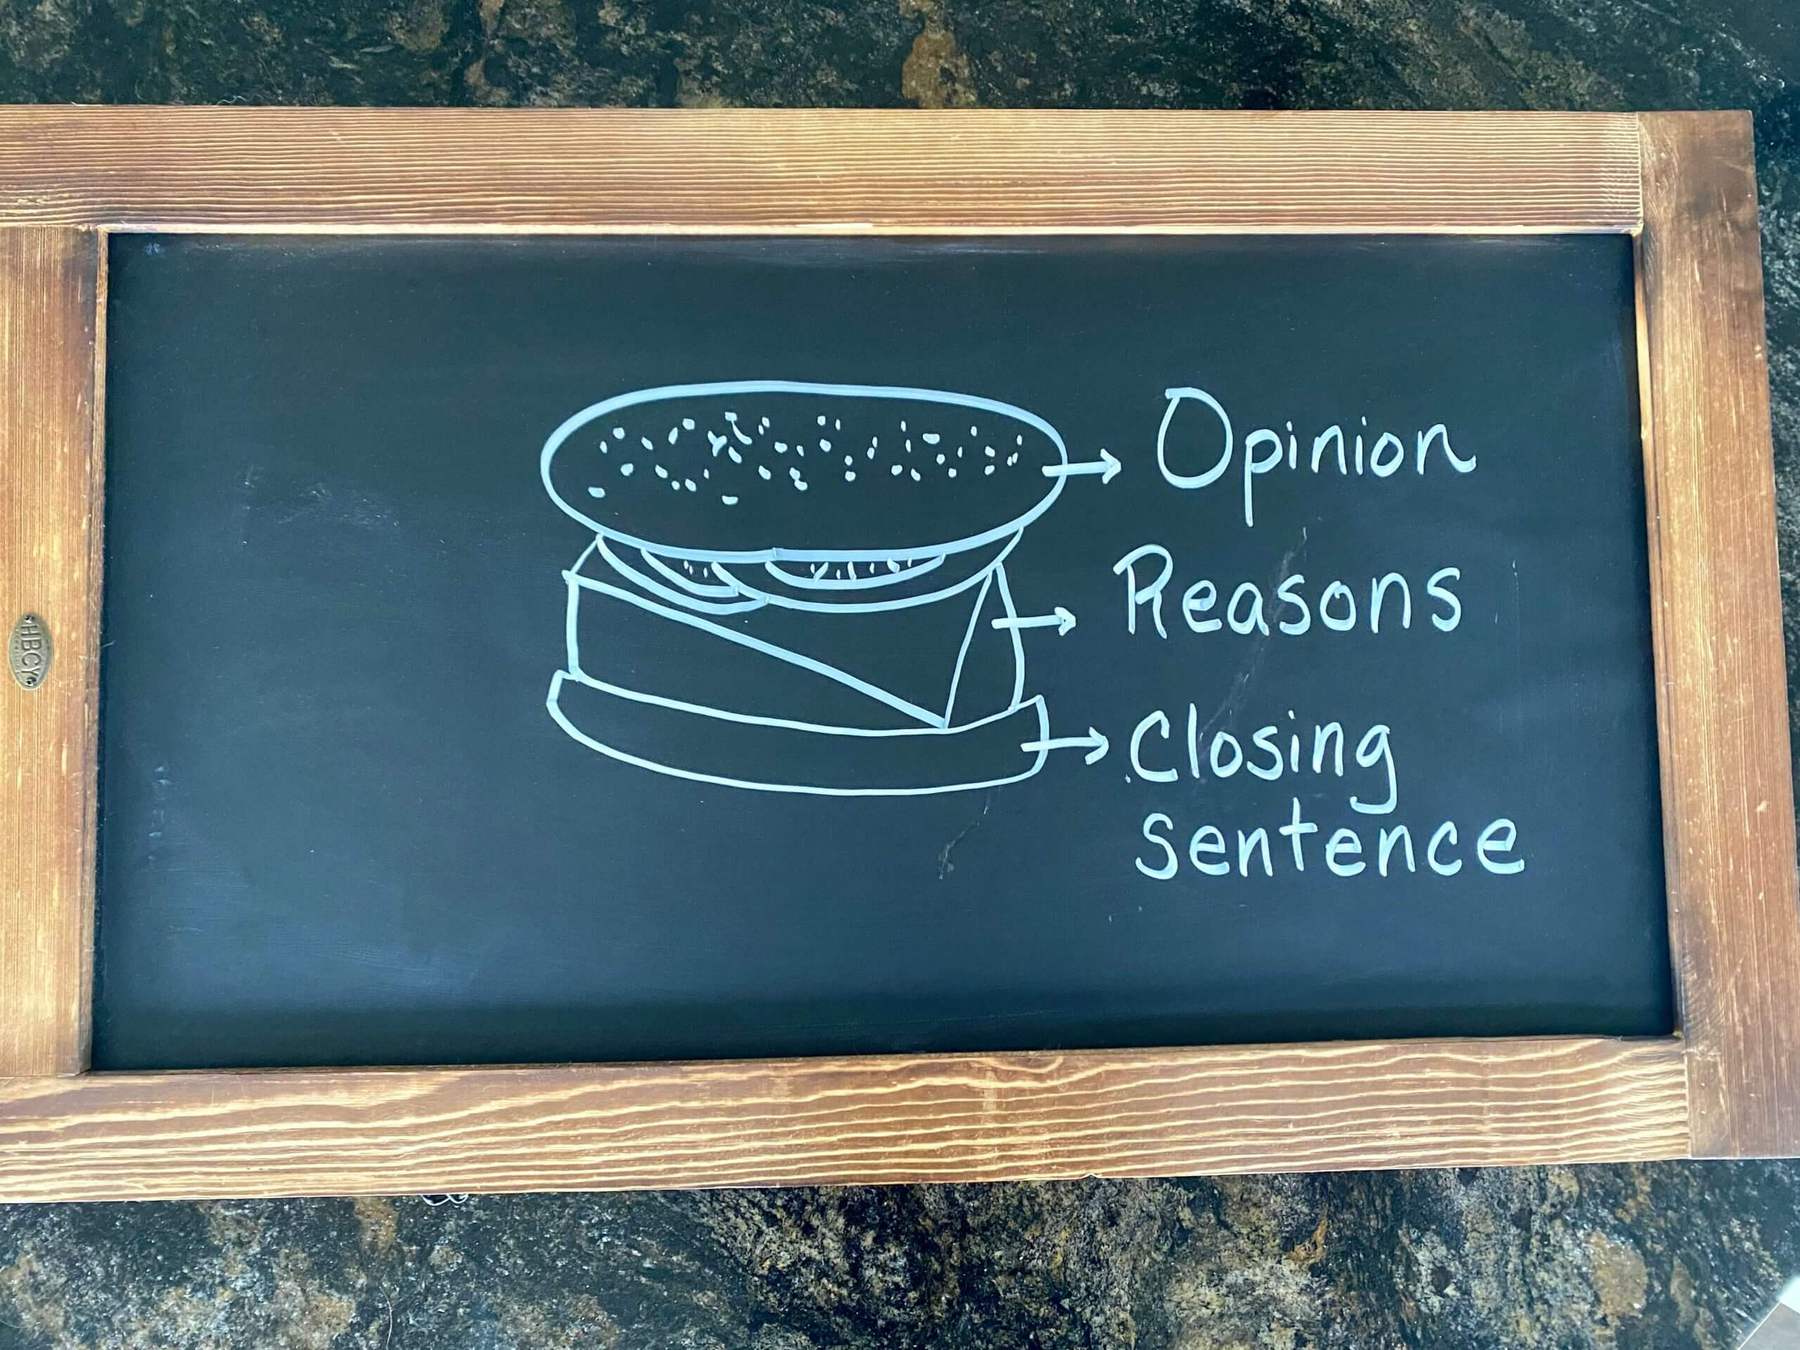 Opinion
Reasons
Closing
sentence
HBCY